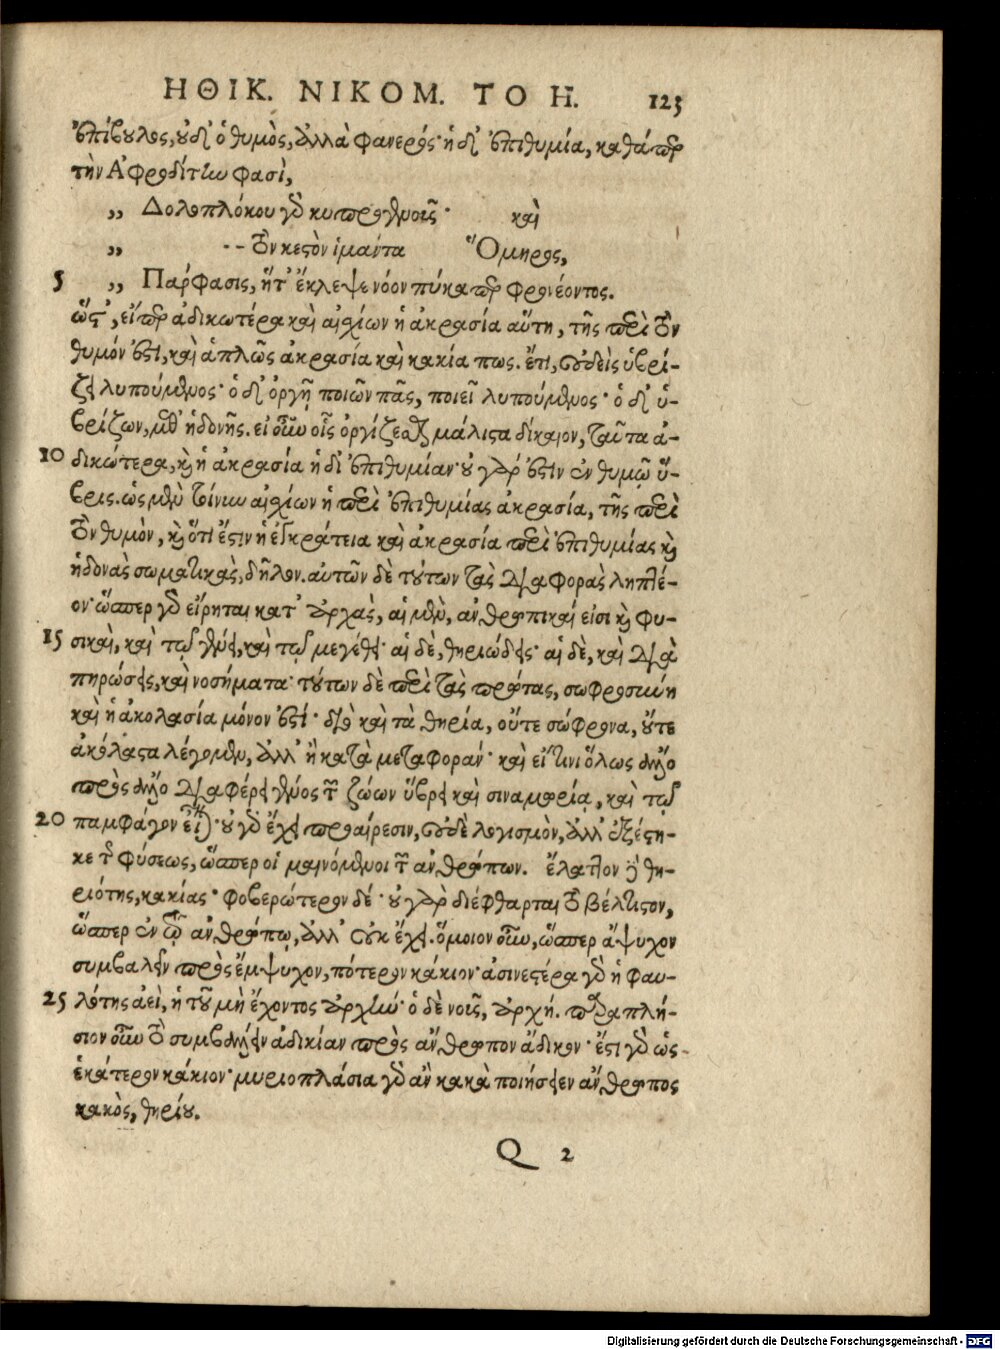 ΗΘΙΚ. ΝΙΚΟΜ. ΤΟ Η. 123
ἐπίβουλος, οὐδ' ὁ θυμὸς, ἀλλὰ φανερός· ἡ δ' ἐπιθυμία, καθάπερ
τὴν Ἀφροδίτην φασὶ,
„ Δολοπλόκου γὰρ κυπρογενοῦς· καὶ
„ -- τὸν κεστὸν ἱμάντα Ὅμηρος,
5 „ Πάρφασις, ἥτ' ἔκλεψε νόον πύκα περ φρονέοντος.
ὥστ', εἴπερ ἀδικωτέρα καὶ αἰσχίων ἡ ἀκρασία αὕτη, τῆς περὶ τὸν
θυμόν ἐστι, καὶ ἁπλῶς ἀκρασία καὶ κακία πως. ἔτι, οὐδεὶς ὑβρί-
ζει λυπούμενος· ὁ δ' ὀργῇ ποιῶν πᾶς, ποιεῖ λυπούμενος· ὁ δ' ὑ-
βρίζων, μεθ' ἡδονῆς. εἰ οὖν οἷς ὀργίζεσθαι μάλιστα δίκαιον, ταῦτα ἀ-
10 δικώτερα, καὶ ἡ ἀκρασία ἡ δι' ἐπιθυμίαν· οὐ γάρ ἐστιν ἐν θυμῷ ὕ-
βρις. ὡς μὲν τοίνυν αἰσχίων ἡ περὶ ἐπιθυμίας ἀκρασία, τῆς περὶ
τὸν θυμὸν, καὶ ὅτι ἔστιν ἡ ἐγκράτεια καὶ ἀκρασία περὶ ἐπιθυμίας καὶ
ἡδονὰς σωματικὰς, δῆλον. αὐτῶν δὲ τούτων τὰς διαφορὰς ληπτέ-
ον· ὥσπερ γὰρ εἴρηται κατ' ἀρχὰς, αἱ μὲν, ἀνθρωπικαί εἰσι καὶ φυ-
15 σικαὶ, καὶ τῷ γένει, καὶ τῷ μεγέθει· αἱ δὲ, θηριώδεις· αἱ δὲ, καὶ διὰ
πηρώσεις, καὶ νοσήματα· τούτων δὲ περὶ τὰς πρώτας, σωφροσύνη
καὶ ἡ ἀκολασία μόνον ἐστί· διὸ καὶ τὰ θηρία, οὔτε σώφρονα, οὔτε
ἀκόλαστα λέγομεν, ἀλλ' ἢ κατὰ μεταφοράν· καὶ εἴ τινι ὅλως ἄλλο
πρὸς ἄλλο διαφέρει γένος τῶν ζώων ὕβρει καὶ σιναμωρίᾳ, καὶ τῷ
20 παμφάγον εἶναι· οὐ γὰρ ἔχει προαίρεσιν, οὐδὲ λογισμὸν, ἀλλ' ἐξέστη-
κε τῆς φύσεως, ὥσπερ οἱ μαινόμενοι τῶν ἀνθρώπων. ἔλαττον δὲ θη-
ριότης, κακίας· φοβερώτερον δέ· οὐ γὰρ διέφθαρται τὸ βέλτιστον,
ὥσπερ ἐν τῷ ἀνθρώπῳ, ἀλλ' οὐκ ἔχει. ὅμοιον οὖν, ὥσπερ ἄψυχον
συμβαλεῖν πρὸς ἔμψυχον, πότερον κάκιον· ἀσινεστέρα γὰρ ἡ φαυ-
25 λότης ἀεὶ, ἡ τοῦ μὴ ἔχοντος ἀρχήν· ὁ δὲ νοῦς, ἀρχή. παραπλή-
σιον οὖν τὸ συμβάλλειν ἀδικίαν πρὸς ἄνθρωπον ἄδικον· ἔστι γὰρ ὡς
ἑκάτερον κάκιον· μυριοπλάσια γὰρ ἂν κακὰ ποιήσειεν ἄνθρωπος
κακὸς, θηρίου.
Q 2
Digitalisierung gefördert durch die Deutsche Forschungsgemeinschaft - DFG